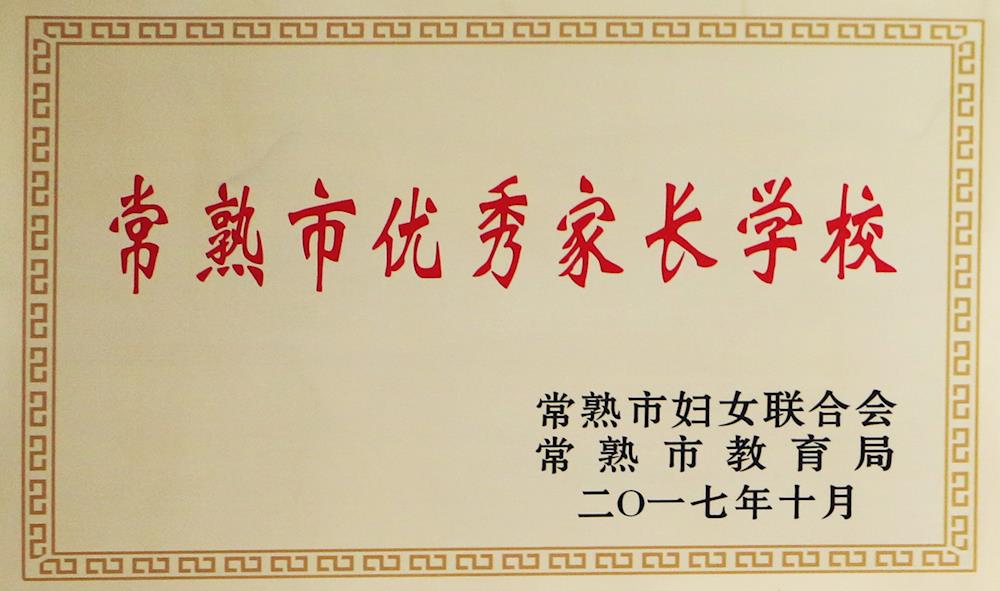 常熟市优秀家长学校
常熟市妇女联合会
常熟市教育局
二〇一七年十月